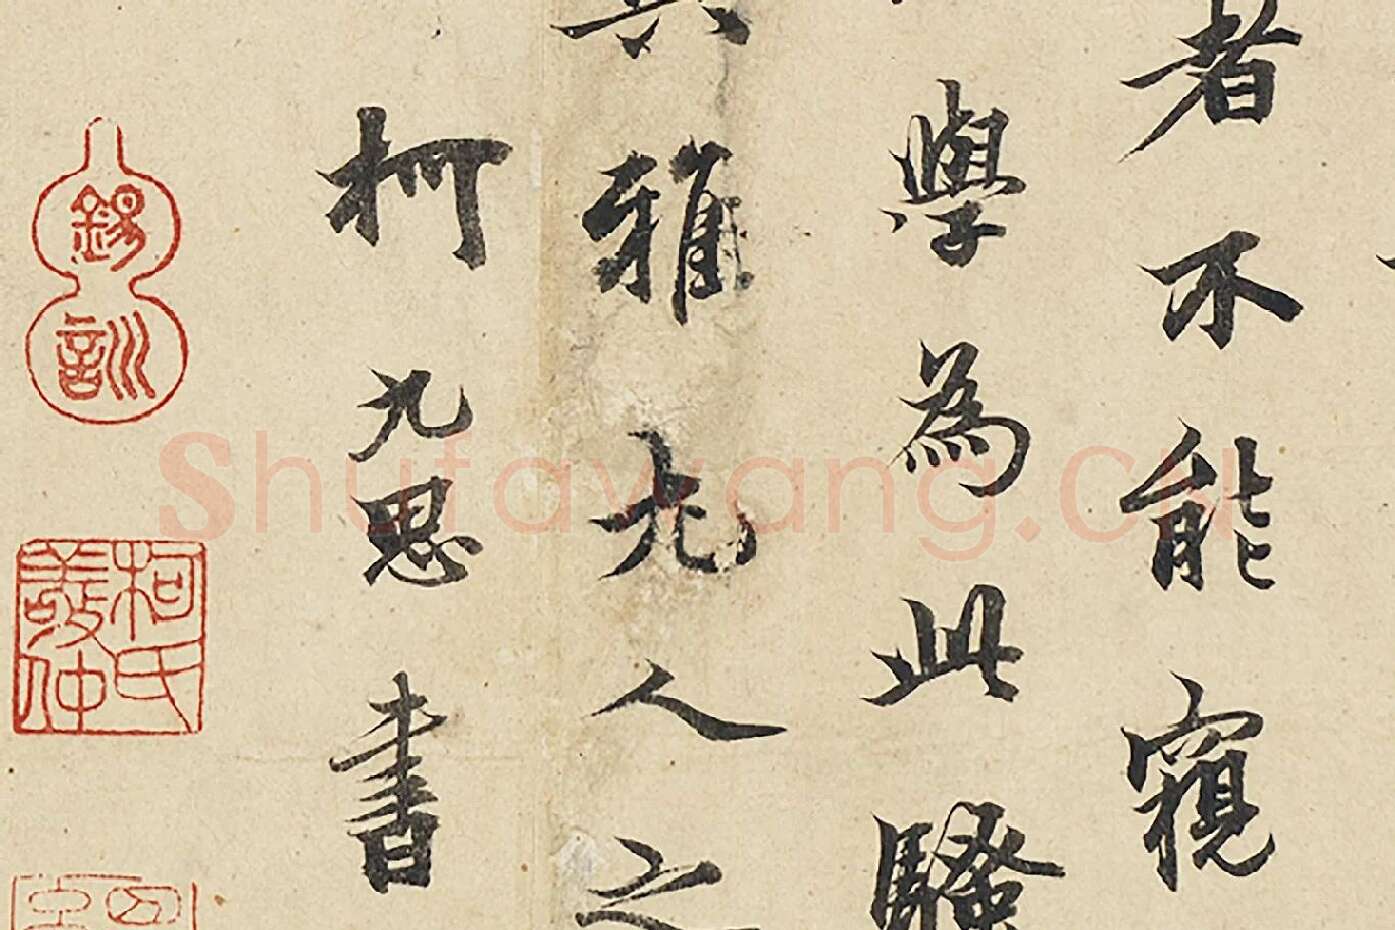 者不能窺
學為此騷
雅尤人之
柯九思書
錫訓
柯氏敬仲
Shufawang.CN